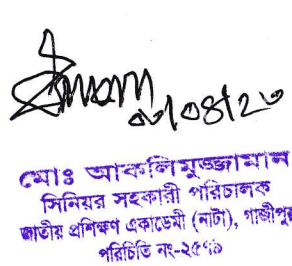 ০৩/০৪/২৩
মোঃ আকলিমুজ্জামান
সিনিয়র সহকারী পরিচালক
জাতীয় প্রশিক্ষণ একাডেমী (নাটা), গাজীপুর
পরিচিতি নং-২৫৭৯